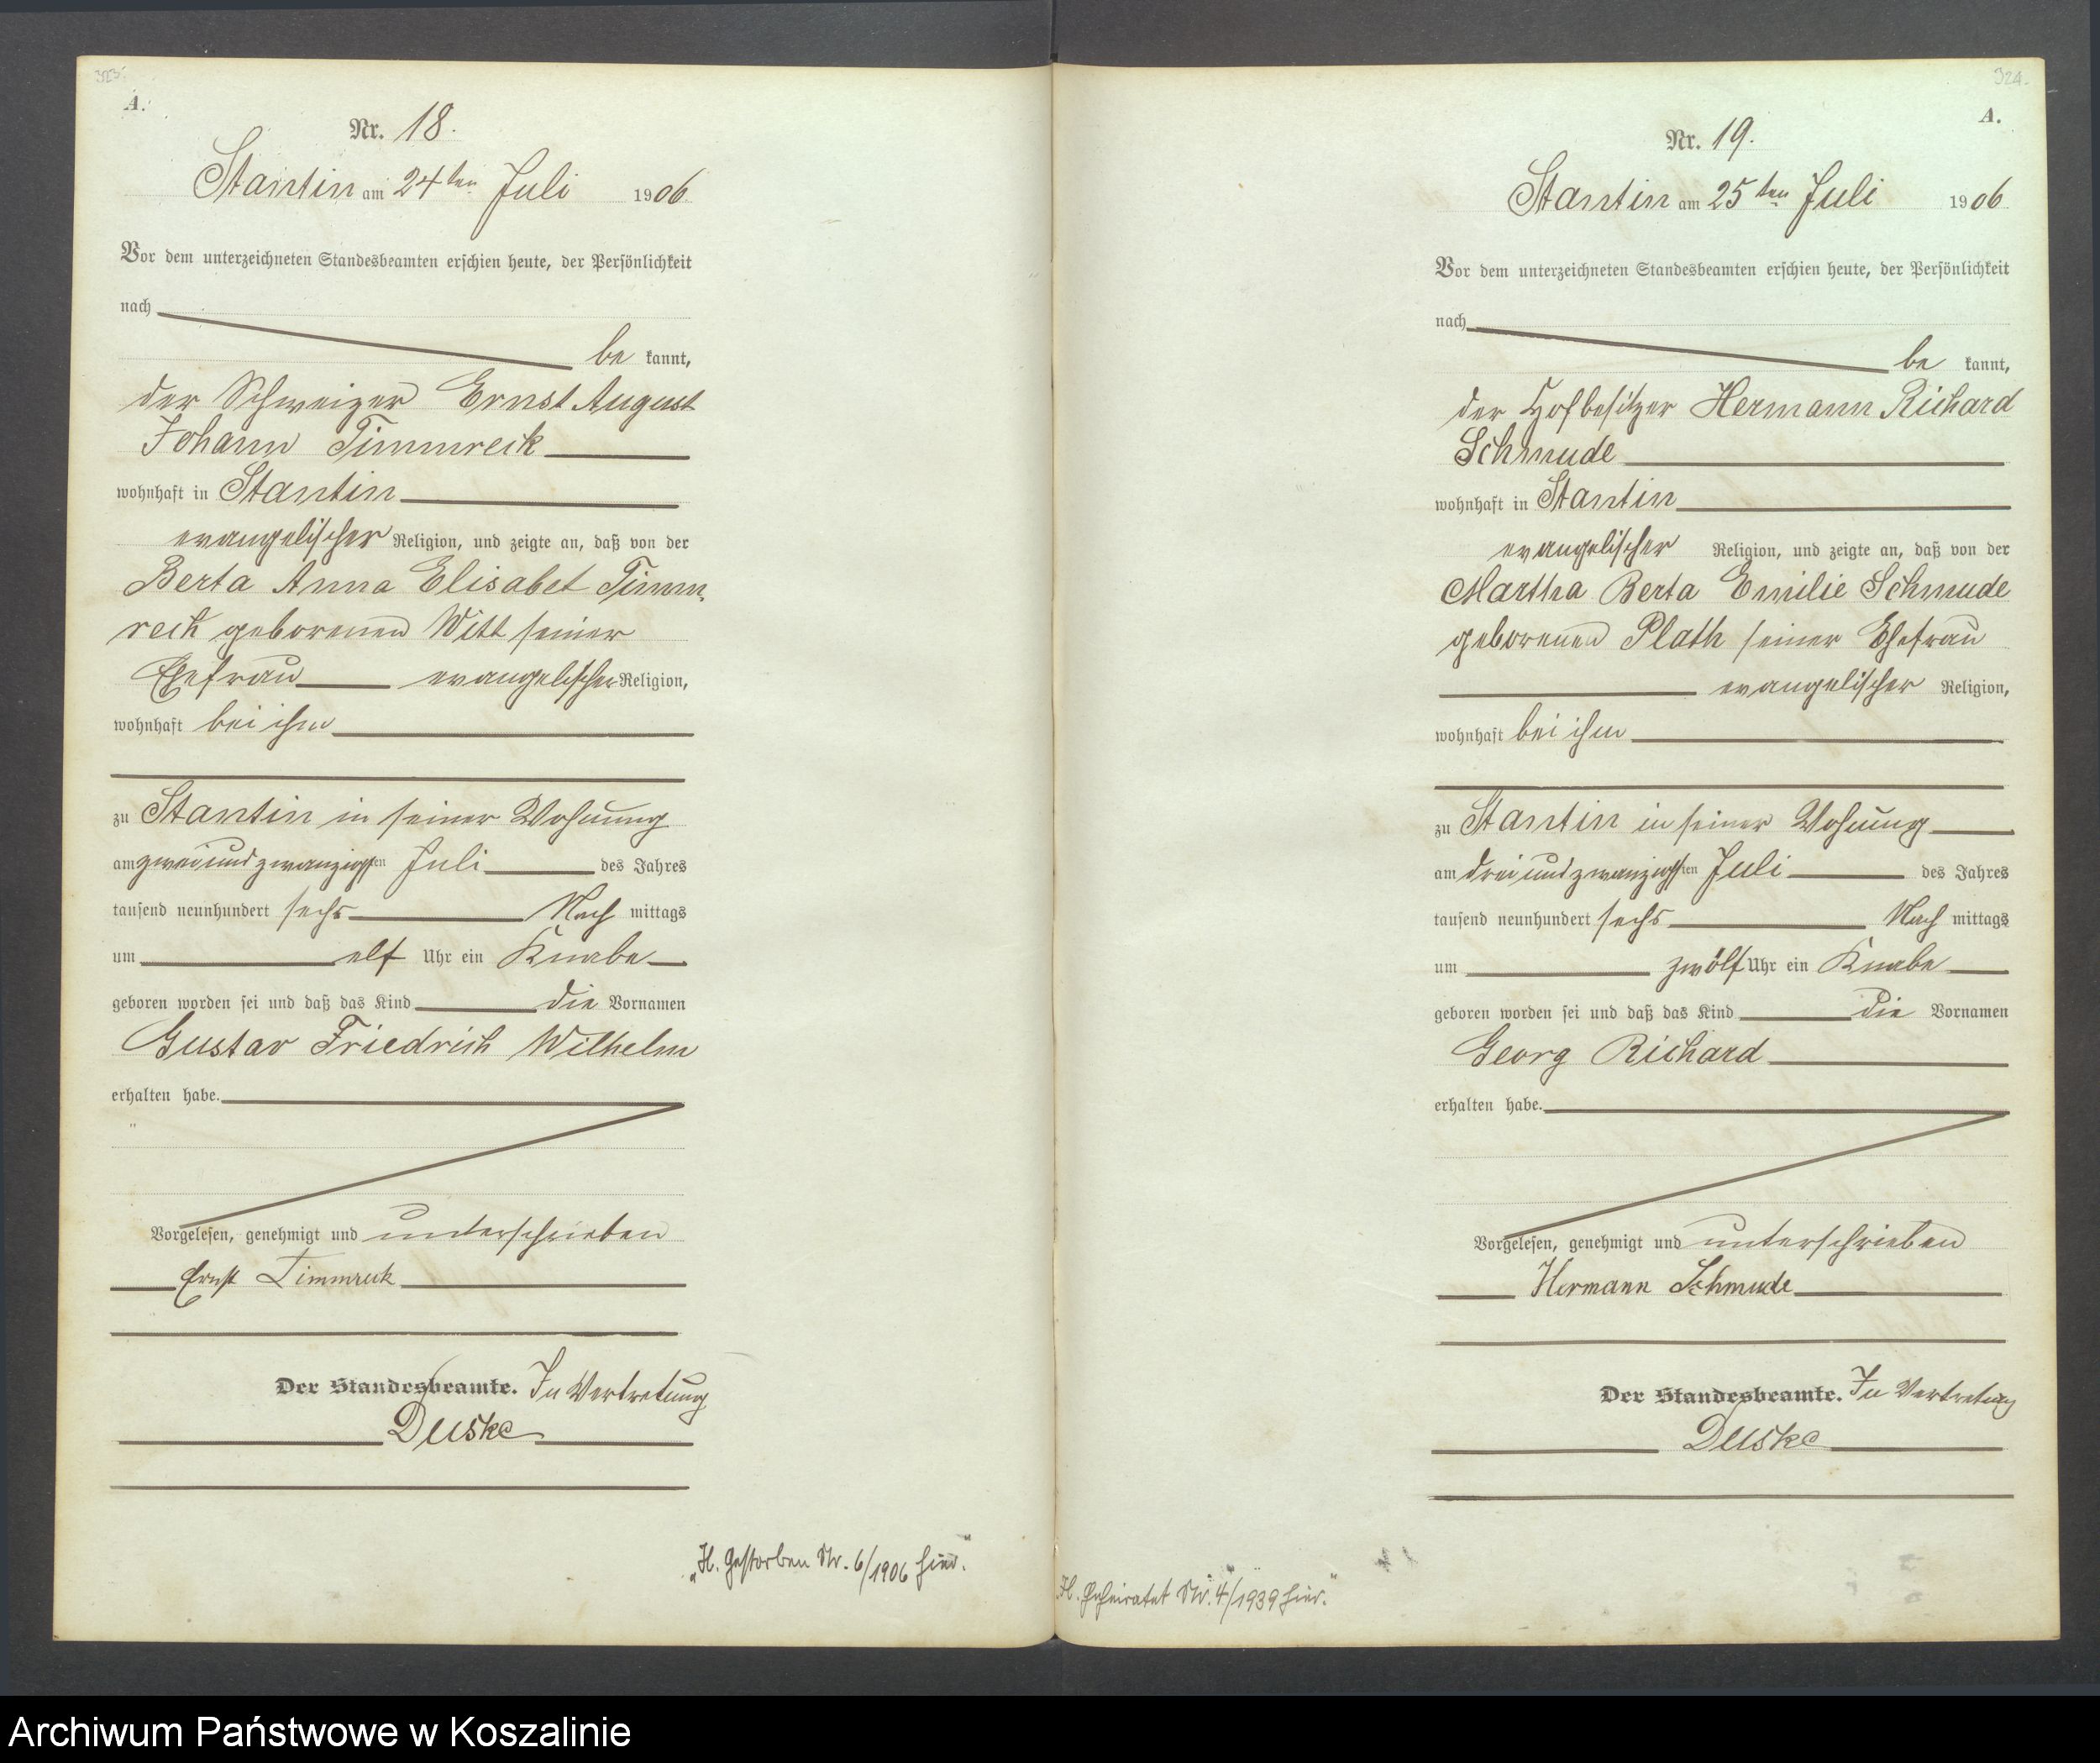 323.
A.
Nr. 18.
Stantin am 24ten Juli 1906
Vor dem unterzeichneten Standesbeamten erschien heute, der Persönlichkeit
nach
be kannt,
der Schweizer Ernst August
Johann Timmreck
wohnhaft in Stantin
evangelischer Religion, und zeigte an, daß von der
Berta Anna Elisabet Timm-
reck geborenen Witt seiner
Ehefrau evangelischer Religion,
wohnhaft bei ihm
zu Stantin in seiner Wohnung
am zweiundzwanzigsten Juli des Jahres
tausend neunhundert sechs Nach mittags
um elf Uhr ein Knabe
geboren worden sei und daß das Kind die Vornamen
Gustav Friedrich Wilhelm
erhalten habe.
Vorgelesen, genehmigt und unterschrieben
Ernst Timmreck
Der Standesbeamte. In Vertretung
Duske
„H. Gestorben Nr. 6/1906 hier."
324.
A.
Nr. 19.
Stantin am 25ten Juli 1906
Vor dem unterzeichneten Standesbeamten erschien heute, der Persönlichkeit
nach
be kannt,
der Hofbesitzer Hermann Richard
Schmude
wohnhaft in Stantin
evangelischer Religion, und zeigte an, daß von der
Martha Berta Emilie Schmude
geborenen Plath seiner Ehefrau
evangelischer Religion,
wohnhaft bei ihm
zu Stantin in seiner Wohnung
am dreiundzwanzigsten Juli des Jahres
tausend neunhundert sechs Nach mittags
um zwölf Uhr ein Knabe
geboren worden sei und daß das Kind die Vornamen
Georg Richard
erhalten habe.
Vorgelesen, genehmigt und unterschrieben
Hermann Schmude
Der Standesbeamte. In Vertretung
Duske
„H. Geheiratet Nr. 4/1939 hier."
Archiwum Państwowe w Koszalinie